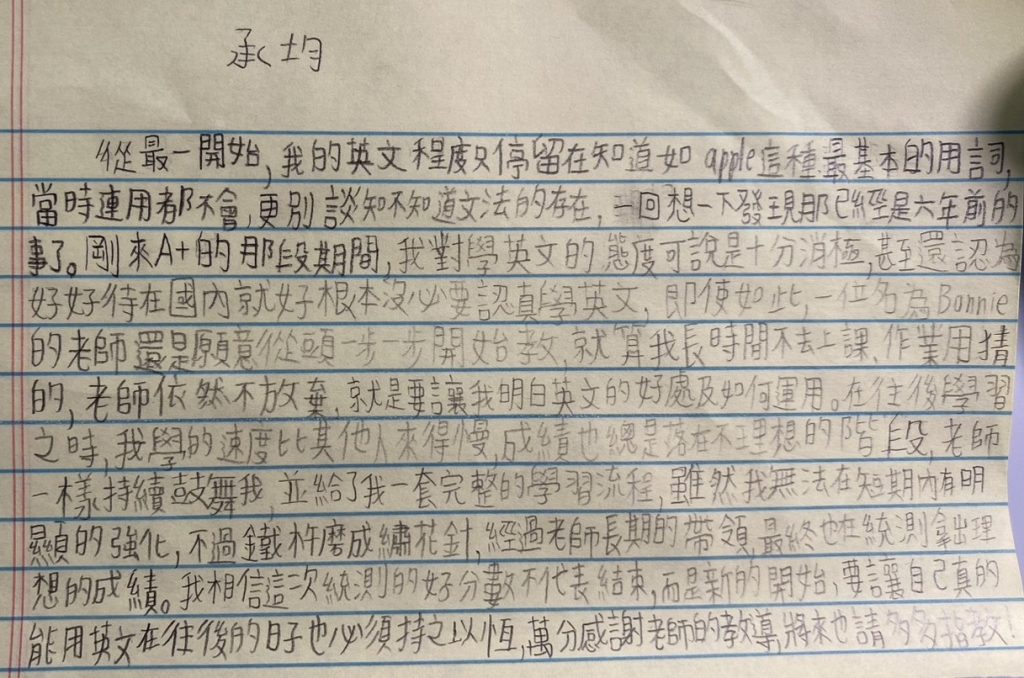 承均
從最一開始,我的英文程度只停留在知道如apple這種最基本的用詞,
當時連用都不會,更別談知不知道文法的存在,一回想一下發現那已經是六年前的
事了。剛來A+的那段期間,我對學英文的態度可說是十分消極,甚至還認為
好好待在國內就好根本沒必要認真學英文,即使如此,一位名為Bonnie
的老師還是願意從頭一步一步開始教,就算我長時間不去上課、作業用猜
的,老師依然不放棄,就是要讓我明白英文的好處及如何運用。在往後學習
之時,我學的速度比其他人來得慢,成績也總是落在不理想的階段,老師
一樣持續鼓舞我,並給了我一套完整的學習流程,雖然我無法在短期內有明
顯的強化,不過鐵杵磨成繡花針,經過老師長期的帶領,最終也在統測拿出理
想的成績。我相信這次統測的好分數不代表結束,而是新的開始,要讓自己真的
能用英文在往後的日子也必須持之以恆,萬分感謝老師的教導,將來也請多多指教!